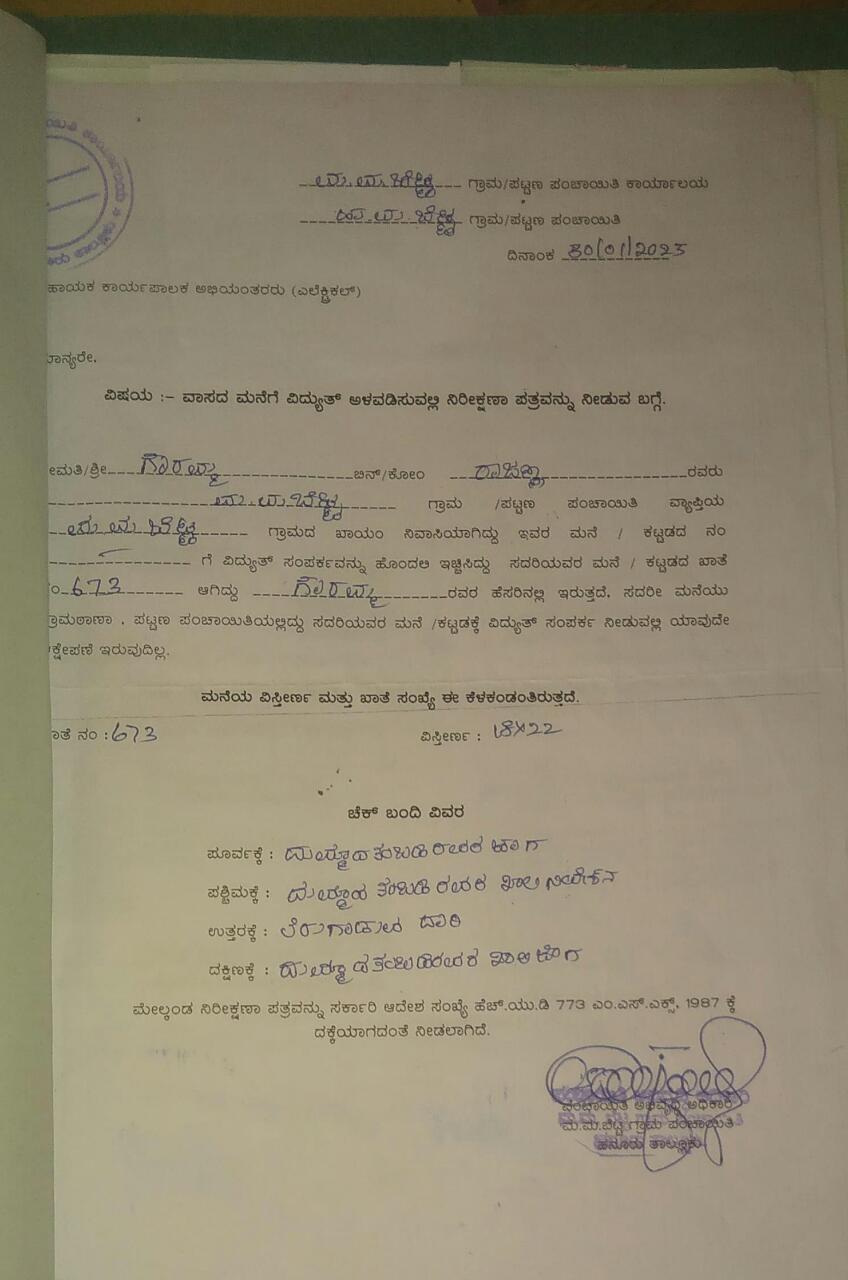 ಮ.ಮ.ಬೆಟ್ಟ ಗ್ರಾಮ/ಪಟ್ಟಣ ಪಂಚಾಯಿತಿ ಕಾರ್ಯಾಲಯ
ಮ.ಮ.ಬೆಟ್ಟ ಗ್ರಾಮ/ಪಟ್ಟಣ ಪಂಚಾಯಿತಿ
ದಿನಾಂಕ 30/01/2023
ಹಾಯಕ ಕಾರ್ಯಪಾಲಕ ಅಭಿಯಂತರರು (ಎಲೆಕ್ಟ್ರಿಕಲ್)
ಾನ್ಯರೇ,
ವಿಷಯ :- ವಾಸದ ಮನೆಗೆ ವಿದ್ಯುತ್ ಅಳವಡಿಸುವಲ್ಲಿ ನಿರೀಕ್ಷಣಾ ಪತ್ರವನ್ನು ನೀಡುವ ಬಗ್ಗೆ.
ೀಮತಿ/ಶ್ರೀ ಗೌರಮ್ಮ ಬಿನ್/ಕೋಂ ರವರು
ಮ.ಮ.ಬೆಟ್ಟ ಗ್ರಾಮ /ಪಟ್ಟಣ ಪಂಚಾಯಿತಿ ವ್ಯಾಪ್ತಿಯ
ಮ ಮ ಬೆಟ್ಟ ಗ್ರಾಮದ ಖಾಯಂ ನಿವಾಸಿಯಾಗಿದ್ದು ಇವರ ಮನೆ / ಕಟ್ಟಡದ ನಂ
ಗೆ ವಿದ್ಯುತ್ ಸಂಪರ್ಕವನ್ನು ಹೊಂದಲು ಇಚ್ಛಿಸಿದ್ದು ಸದರಿಯವರ ಮನೆ / ಕಟ್ಟಡದ ಖಾತೆ
ಂ 673 ಆಗಿದ್ದು ಗೌರಮ್ಮ ರವರ ಹೆಸರಿನಲ್ಲಿ ಇರುತ್ತದೆ, ಸದರೀ ಮನೆಯು
್ರಾಮಠಾಣಾ , ಪಟ್ಟಣ ಪಂಚಾಯಿತಿಯಲ್ಲಿದ್ದು ಸದರಿಯವರ ಮನೆ /ಕಟ್ಟಡಕ್ಕೆ ವಿದ್ಯುತ್ ಸಂಪರ್ಕ ನೀಡುವಲ್ಲಿ ಯಾವುದೇ
ಕ್ಷೇಪಣೆ ಇರುವುದಿಲ್ಲ.
ಮನೆಯ ವಿಸ್ತೀರ್ಣ ಮತ್ತು ಖಾತೆ ಸಂಖ್ಯೆ ಈ ಕೆಳಕಂಡಂತಿರುತ್ತದೆ.
ಾತೆ ನಂ : 673 ವಿಸ್ತೀರ್ಣ : 18×22
ಚೆಕ್ ಬಂದಿ ವಿವರ
ಪೂರ್ವಕ್ಕೆ :
ಪಶ್ಚಿಮಕ್ಕೆ :
ಉತ್ತರಕ್ಕೆ : ದಾರಿ
ದಕ್ಷಿಣಕ್ಕೆ :
ಮೇಲ್ಕಂಡ ನಿರೀಕ್ಷಣಾ ಪತ್ರವನ್ನು ಸರ್ಕಾರಿ ಆದೇಶ ಸಂಖ್ಯೆ ಹೆಚ್.ಯು.ಡಿ 773 ಎಂ.ಎಸ್.ಎಕ್ಸ್, 1987 ಕ್ಕೆ
ದಕ್ಕೆಯಾಗದಂತೆ ನೀಡಲಾಗಿದೆ.
ಪಂಚಾಯಿತಿ ಅಭಿವೃದ್ಧಿ ಅಧಿಕಾರಿ
ಮ.ಮ.ಬೆಟ್ಟ ಗ್ರಾಮ ಪಂಚಾಯಿತಿ
ಹನೂರು ತಾಲ್ಲೂಕು